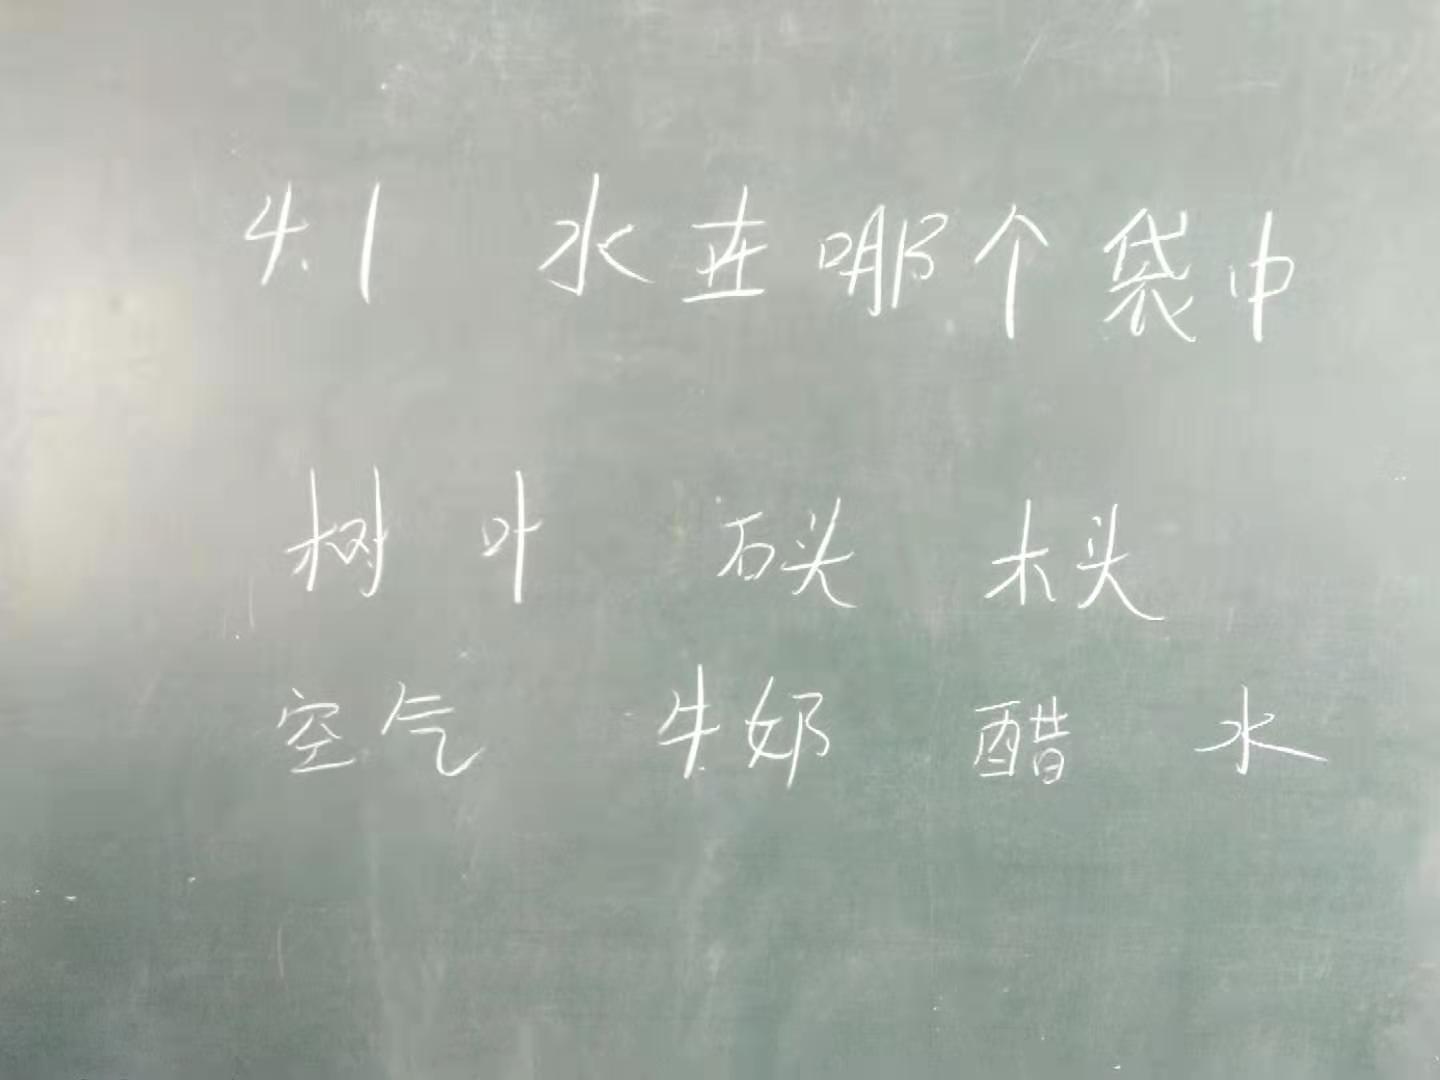 4.1 水在哪个袋中
树叶 石头 木头
空气 牛奶 醋 水